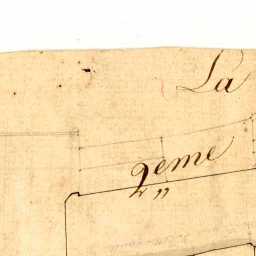 La
2eme
"